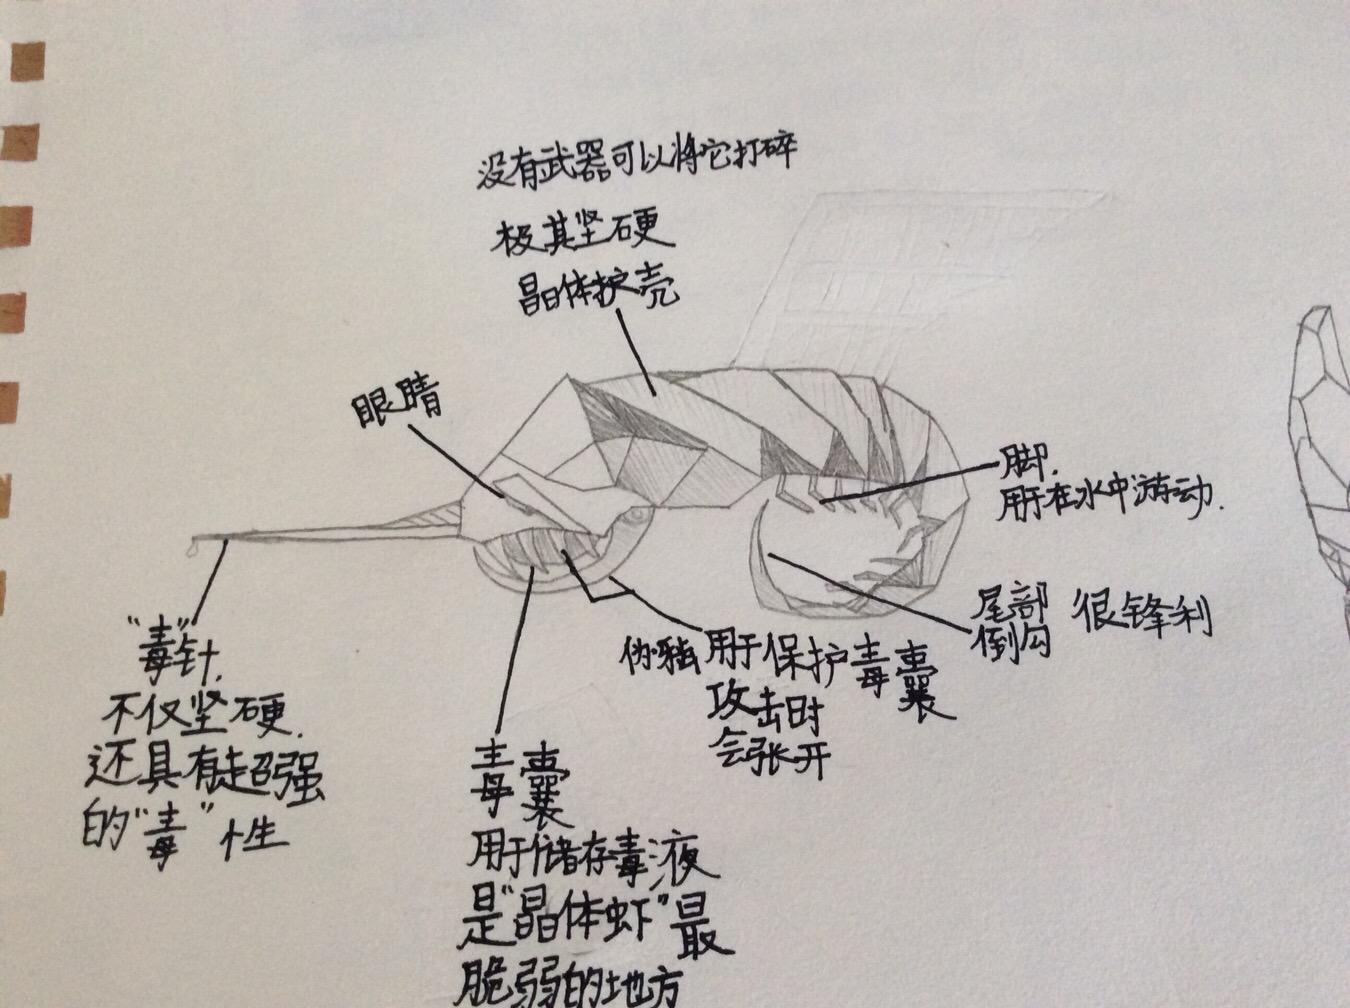 没有武器可以将它打碎
极其坚硬
晶体护壳
眼睛
脚.
用于在水中游动.
尾部 很锋利
倒勾
"毒"针.
不仅坚硬.
还具有超强
的"毒"性
用于保护毒囊
攻击时
会张开
毒囊
用于储存毒液
是"晶体虾"最
脆弱的地方